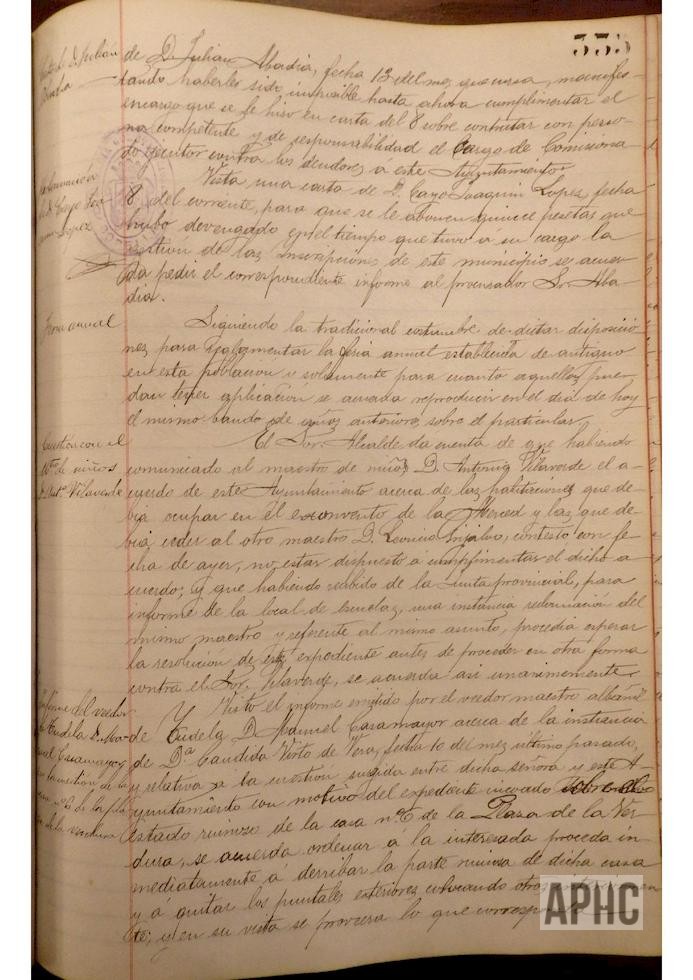 335
Carta de D. Julián
Abadia
de D. Julian Abadia, fecha 13 del mes que cursa, manifes-
tando haberle sido imposible hasta ahora cumplimentar el
encargo que se le hizo en carta del 8 sobre contratar con perso-
na competente y de responsabilidad el cargo de Comisiona-
do ejecutor contra los deudores á este Ayuntamiento.
Reclamacion
de D. Cayo Joa-
quin Lopez
Vista una carta de D. Cayo Joaquin Lopez, fecha
8 del corriente, para que se le abonen quince pesetas que
hubo devengado en el tiempo que tuvo á su cargo la
gestion de las inscripciones de este municipio se acuer-
da pedir el correspondiente informe al procurador Sr. Aba-
dia.
Feria anual
Siguiendo la tradicional costumbre de dictar disposicio-
nes para reglamentar la feria anual establecida de antiguo
en esta poblacion y solamente para cuanto aquellas pue-
dan tener aplicacion se acuerda reproducir en el dia de hoy
el mismo bando de años anteriores sobre el particular.
Cuestion con el
Mtro. de niños
D. Antº Vilaverde
El Sor. Alcalde da cuenta de que habiendo
comunicado al maestro de niños D. Antonio Vilaverde el a-
cuerdo de este Ayuntamiento acerca de las habitaciones que de-
bia ocupar en el exconvento de la Merced y las que de-
bia ceder al otro maestro D. Leoncio Grijalvo, contestó con fe-
cha de ayer, no estar dispuesto á cumplimentar el dicho a-
cuerdo; y que habiendo recibido de la Junta provincial, para
informe de la local de Escuelas, una instancia reclamacion del
mismo maestro y referente al mismo asunto, procedia esperar
la resolucion de este expediente antes de proceder en otra forma
contra el Sor. Vilaverde, se acuerda asi unanimemente.
Informe del veedor
de Tudela D. Ma-
nuel Casamayor
en la cuestion de la
casa nº 6 de la plaza
de la verdura
Y Visto el informe emitido por el veedor maestro albañil
de Tudela D. Manuel Casamayor acerca de la instancia
de Dª Candida Visto de Vera, fecha 10 del mes último pasado,
y relativa á la cuestion surgida entre dicha señora y este A-
yuntamiento con motivo del expediente incoado sobre el
estado ruinoso de la casa nº 6 de la Plaza de la Ver-
dura, se acuerda ordenar á la interesada proceda in-
mediatamente á derribar la parte ruinosa de dicha casa
y á quitar los puntales exteriores colocando otros
te; y en su vista se proveera lo que corresponda
APHC